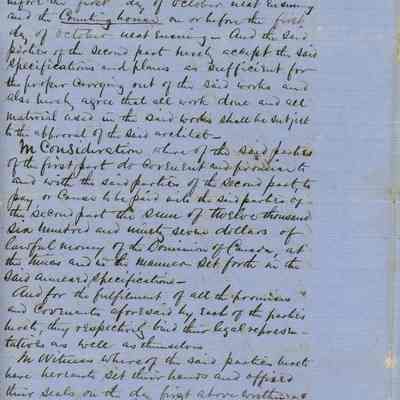 before the first day of October next ensuing
and the Counting house on or before the first
day of October next ensuing – And the said
parties of the second part hereby accept the said
specifications and plans as sufficient for
the proper carrying out of the said works and
also hereby agree that all work done and all
material used in the said works shall be subject
to the approval of the said architect –
In Consideration whereof the said parties
of the first part do covenant and promise to
and with the said parties of the second part to
pay or cause to be paid unto the said parties of
the second part the sum of twelve thousand
six hundred and ninety seven dollars of
lawful money of the Dominion of Canada, at
the times and in the manner set forth in the
said annexed specifications –
And for the fulfilment, of all the promises
and covenants aforesaid by each of the parties
hereto, they respectively bind their legal represen-
tatives as well as themselves
In Witness whereof the said parties hereto
have hereunto set their hands and affixed
their seals on the day first above written